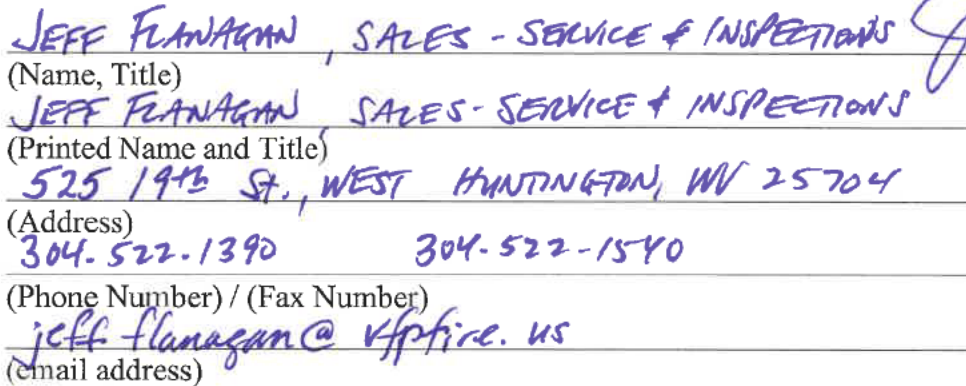 JEFF FLANAGAN, SALES - SERVICE & INSPECTIONS
(Name, Title)
JEFF FLANAGAN, SALES - SERVICE & INSPECTIONS
(Printed Name and Title)
525 19th St., WEST HUNTINGTON, WV 25704
(Address)
304.522.1390 304.522-1540
(Phone Number) / (Fax Number)
jeff.flanagan@vfpfire.us
(email address)